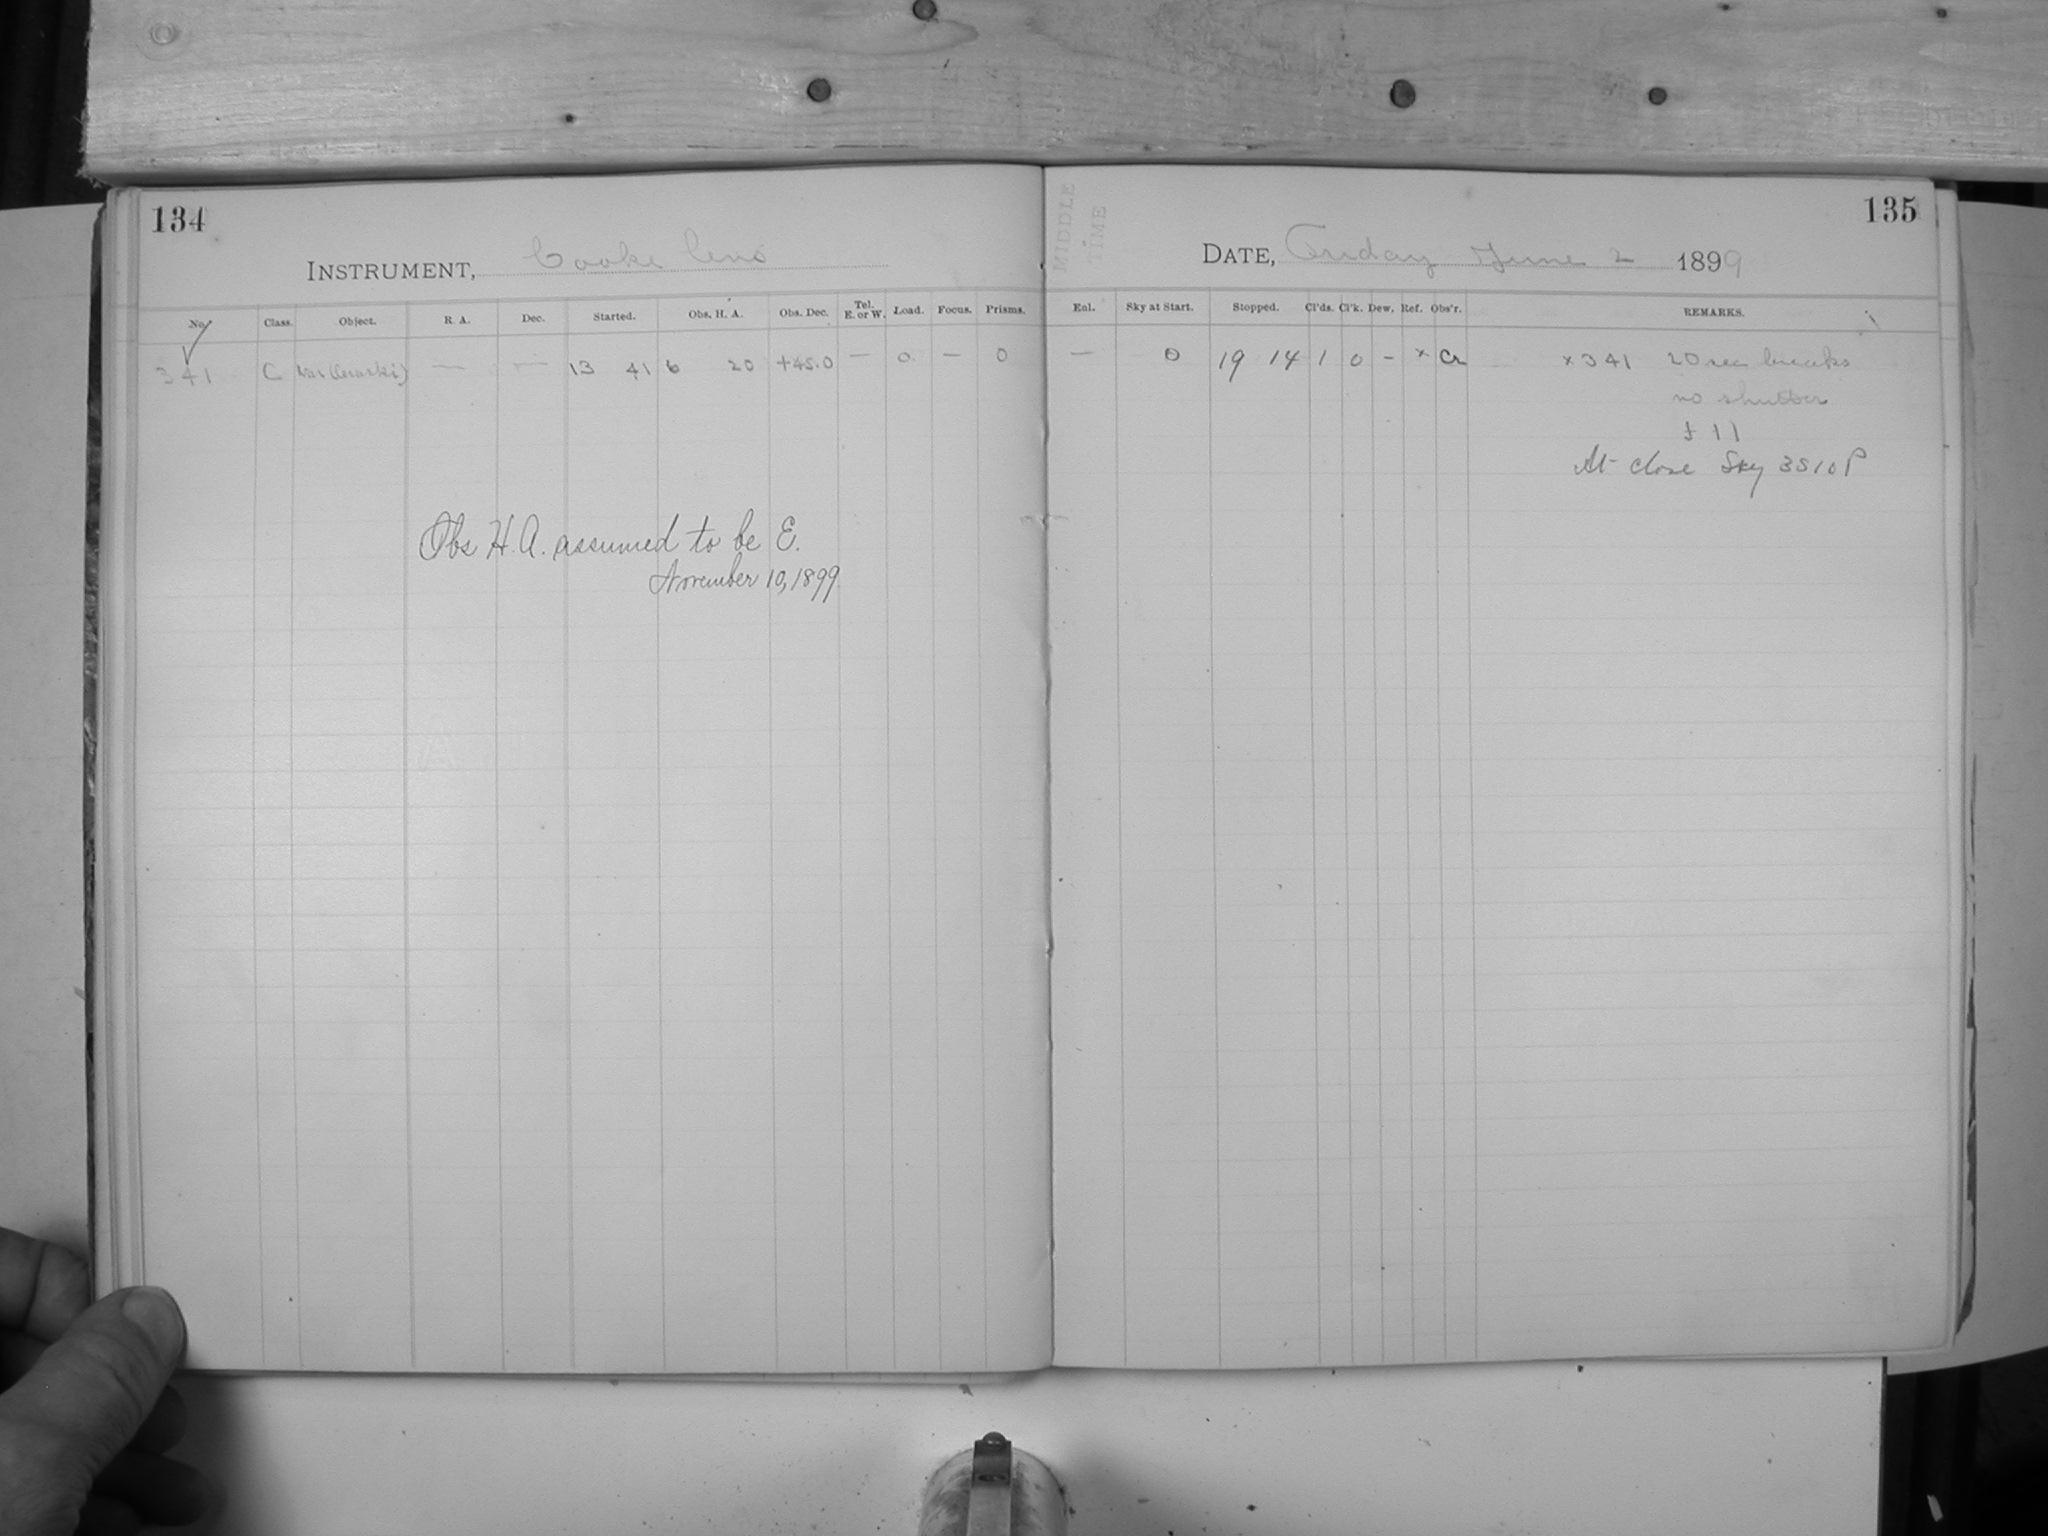 134
INSTRUMENT, Cooke lens
No. Class. Object. R. A. Dec. Started. Obs. H. A. Obs. Dec. Tel. E. or W. Load. Focus. Prisms.
341 C — — 13 41 6 20 +45.0 — 0 — 0
Obs H.A. assumed to be E.
November 10, 1899
MIDDLE
TIME
135
DATE, Friday June 2 1899
Enl. Sky at Start. Stopped. Cl'ds. Cl'k. Dew. Ref. Obs'r. REMARKS.
— 0 19 14 1 0 - x Cr x 341 20 sec breaks
no shutter
f 11
At close Sky 3510P